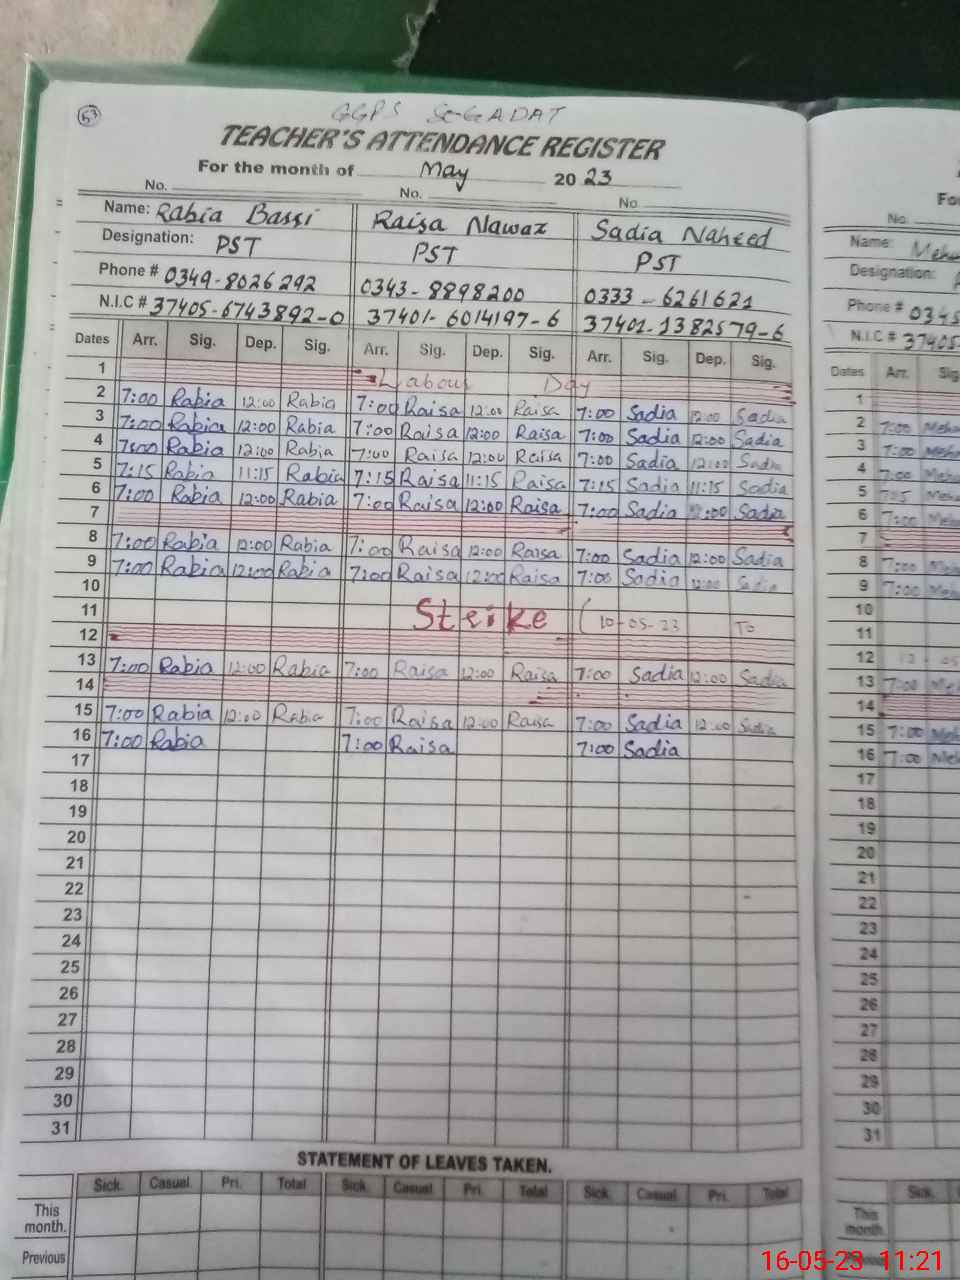 53
GGPS SEGADAT
TEACHER'S ATTENDANCE REGISTER
For the month of May 2023
No. No. No
Name: Rabia Bassi Raisa Nawaz Sadia Naheed
Designation: PST PST PST
Phone # 0349-8026292 0343-8898200 0333-6261621
N.I.C # 37405-6743892-0 37401-6014197-6 37401-1382579-6
Dates Arr. Sig. Dep. Sig. Arr. Sig. Dep. Sig. Arr. Sig. Dep. Sig.
1 Labour Day
2 7:00 Rabia 12:00 Rabia 7:00 Raisa 12:00 Raisa 7:00 Sadia 12:00 Sadia
3 7:00 Rabia 12:00 Rabia 7:00 Raisa 12:00 Raisa 7:00 Sadia 12:00 Sadia
4 7:00 Rabia 12:00 Rabia 7:00 Raisa 12:00 Raisa 7:00 Sadia 12:00 Sadia
5 7:15 Rabia 11:15 Rabia 7:15 Raisa 11:15 Raisa 7:15 Sadia 11:15 Sadia
6 7:00 Rabia 12:00 Rabia 7:00 Raisa 12:00 Raisa 7:00 Sadia 12:00 Sadia
7
8 7:00 Rabia 12:00 Rabia 7:00 Raisa 12:00 Raisa 7:00 Sadia 12:00 Sadia
9 7:00 Rabia 12:00 Rabia 7:00 Raisa 12:00 Raisa 7:00 Sadia 12:00 Sadia
10
11 Strike (10-05-23 To
12
13 7:00 Rabia 12:00 Rabia 7:00 Raisa 12:00 Raisa 7:00 Sadia 12:00 Sadia
14
15 7:00 Rabia 12:00 Rabia 7:00 Raisa 12:00 Raisa 7:00 Sadia 12:00 Sadia
16 7:00 Rabia 7:00 Raisa 7:00 Sadia
17
18
19
20
21
22
23
24
25
26
27
28
29
30
31
STATEMENT OF LEAVES TAKEN.
Sick. Casual. Pri. Total Sick. Casual. Pri. Total Sick. Casual. Pri. Total
This
month.
Previous
No.
Name:
Designation:
Phone # 0345
N.I.C # 37405
Dates Arr. Sig
1
2 7:00
3 7:00
4 7:00
5
6 7:00
7
8 7:00
9 7:00
10
11
12
13 7:00
14
15 7:00
16 7:00
17
18
19
20
21
22
23
24
25
26
27
28
29
30
31
Sick.
This
month
16-05-23 11:21